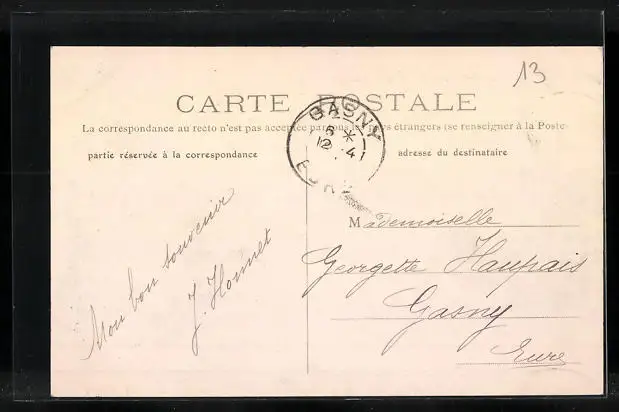 13
CARTE POSTALE
La correspondance au recto n'est pas acceptée par tous les pays étrangers (se renseigner à la Poste
partie réservée à la correspondance
adresse du destinataire
GASNY
EURE
Mon bon souvenir
J. Honnet
Mademoiselle
Georgette Haupais
Gasny
Eure